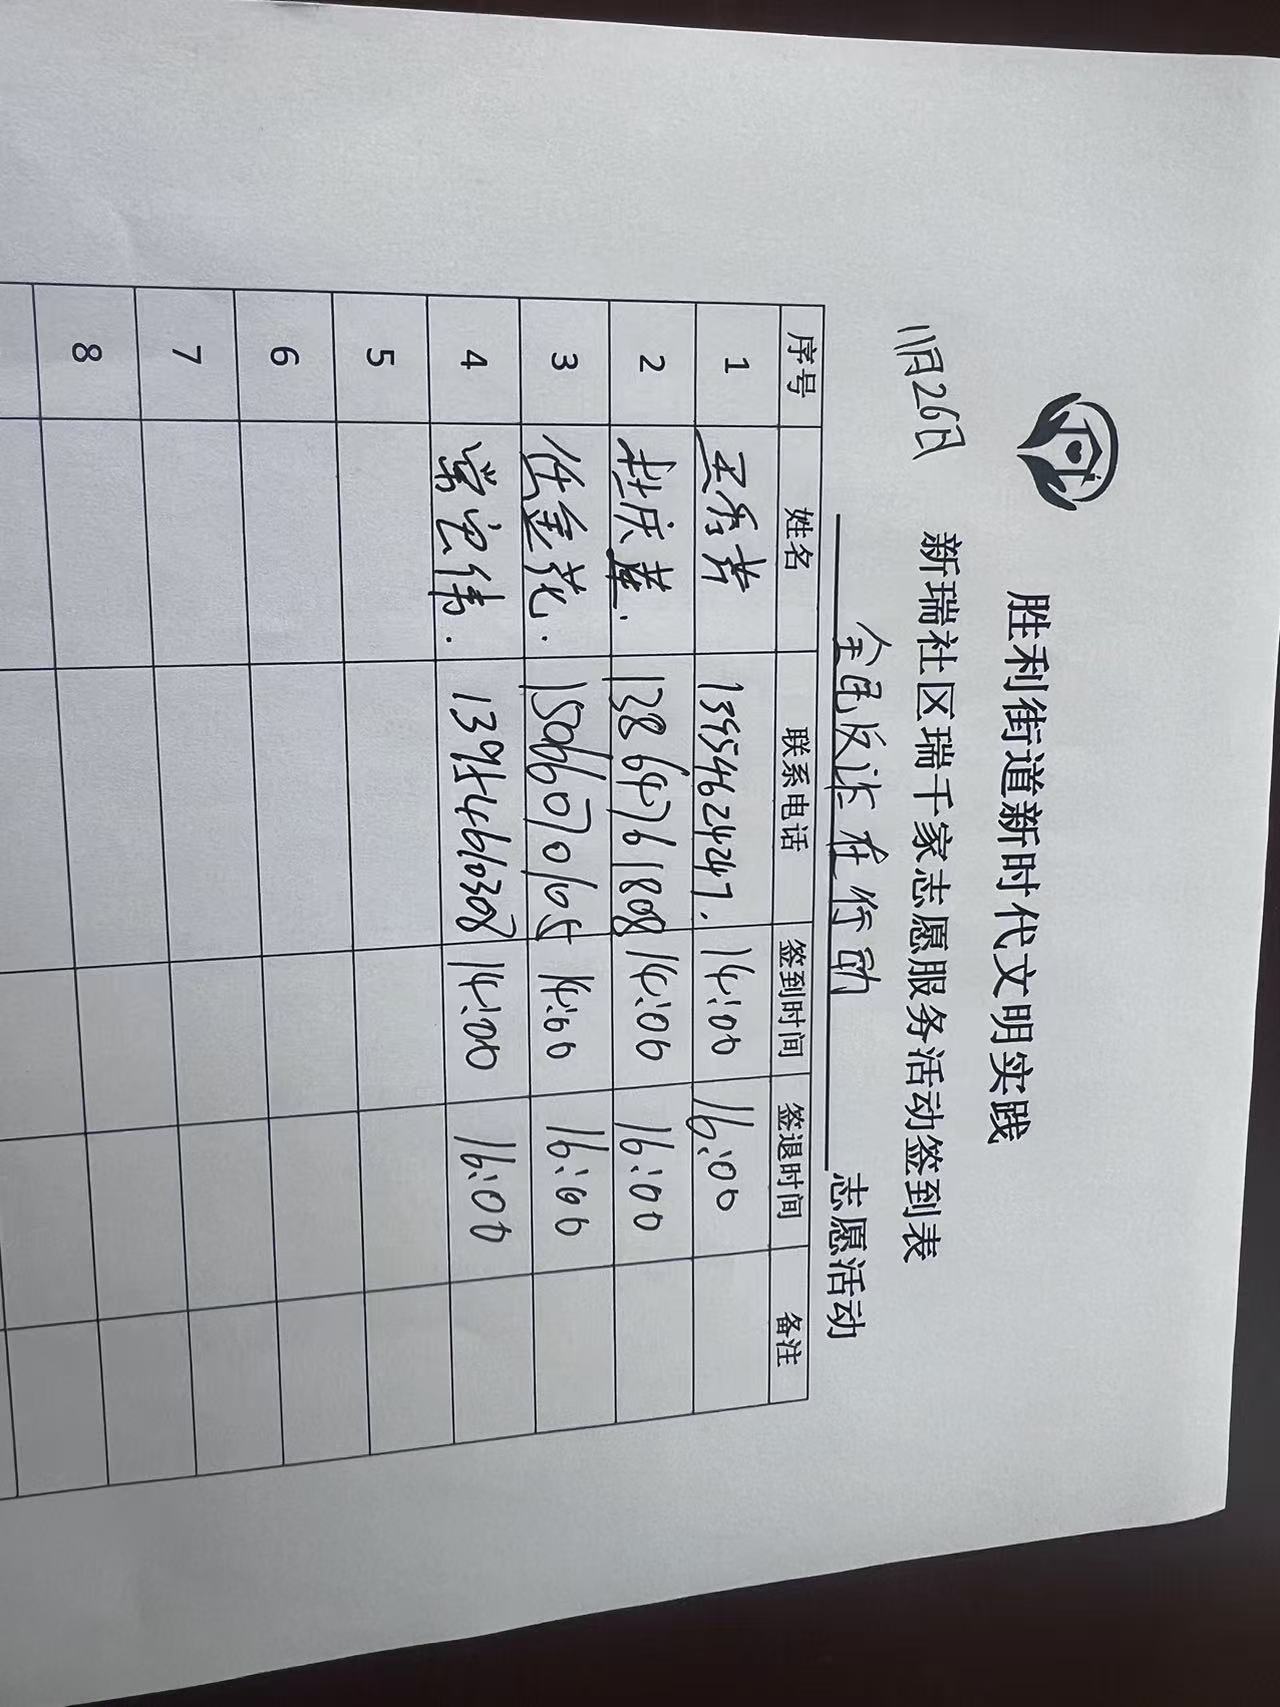 胜利街道新时代文明实践
新瑞社区瑞千家志愿服务活动签到表
11月26日
全民反诈在行动 志愿活动
序号 姓名 联系电话 签到时间 签退时间 备注
1 王秀芳 13954624247. 14:00 16:00
2 杜庆莲. 13864761808 14:00 16:00
3 任金花. 15066070105 14:00 16:00
4 常宝伟. 13954610308 14:00 16:00
5
6
7
8